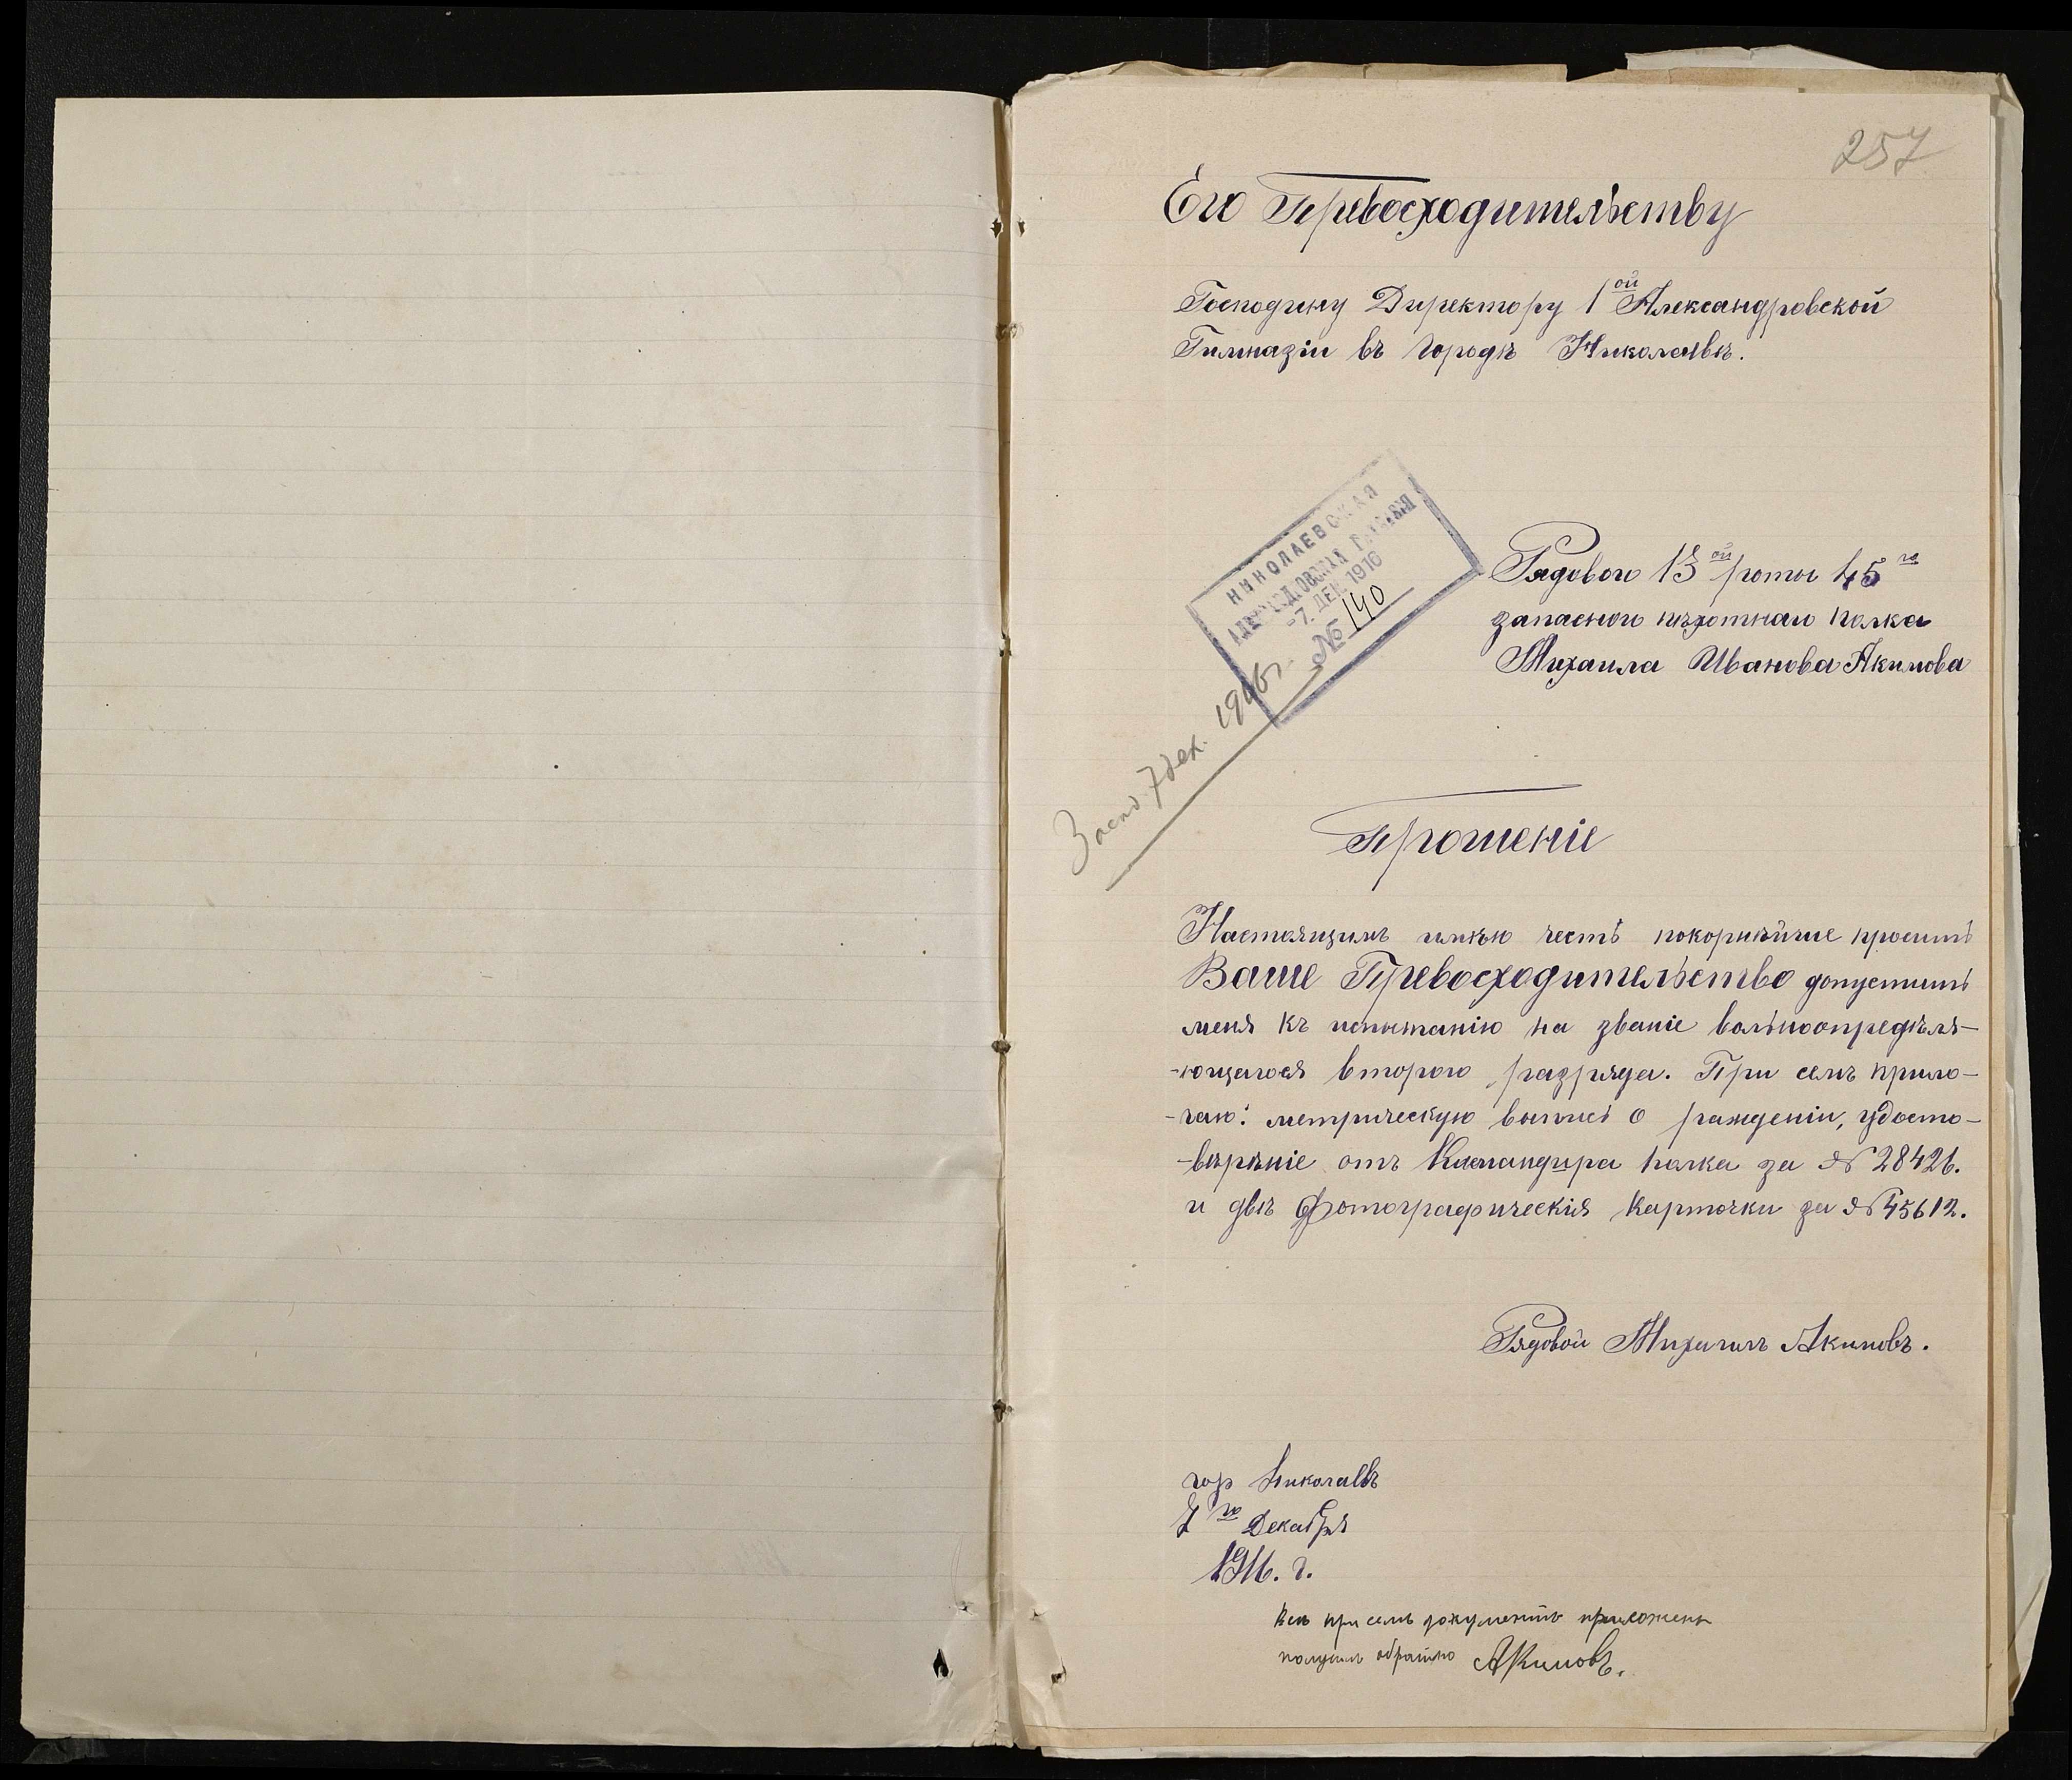 257
Его Превосходительству
Господину Директору 1ой Александровской
Гимназіи въ городѣ Николаевѣ.
НИКОЛАЕВСКАЯ
АЛЕКСАНДРОВСКАЯ ГИМНАЗІЯ
-7. ДЕК. 1916
№ 140
7 дек. 1916 г.
Рядового 13ой роты 45го
запасного пѣхотнаго полка
Михаила Иванова Акимова
Прошеніе
Настоящимъ имѣю честь покорнѣйше просить
Ваше Превосходительство допустить
меня къ испытанію на званіе вольноопредѣля-
-ющагося второго разряда. При семъ прила-
-гаю: метрическую выпись о рожденіи, удосто-
-вѣрѣніе отъ Командира полка за № 28426.
и двѣ фотографическія карточки за № 45612.
Рядовой Михаилъ Акимовъ.
гор Николаевъ
7го Декабря
1916. г.
Всѣ при семъ документы приложены
получилъ обратно Акимовъ.